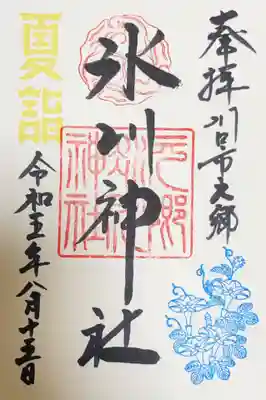 奉拝 川口市元郷
氷川神社
元郷
氷川
神社
夏詣
令和五年八月十三日